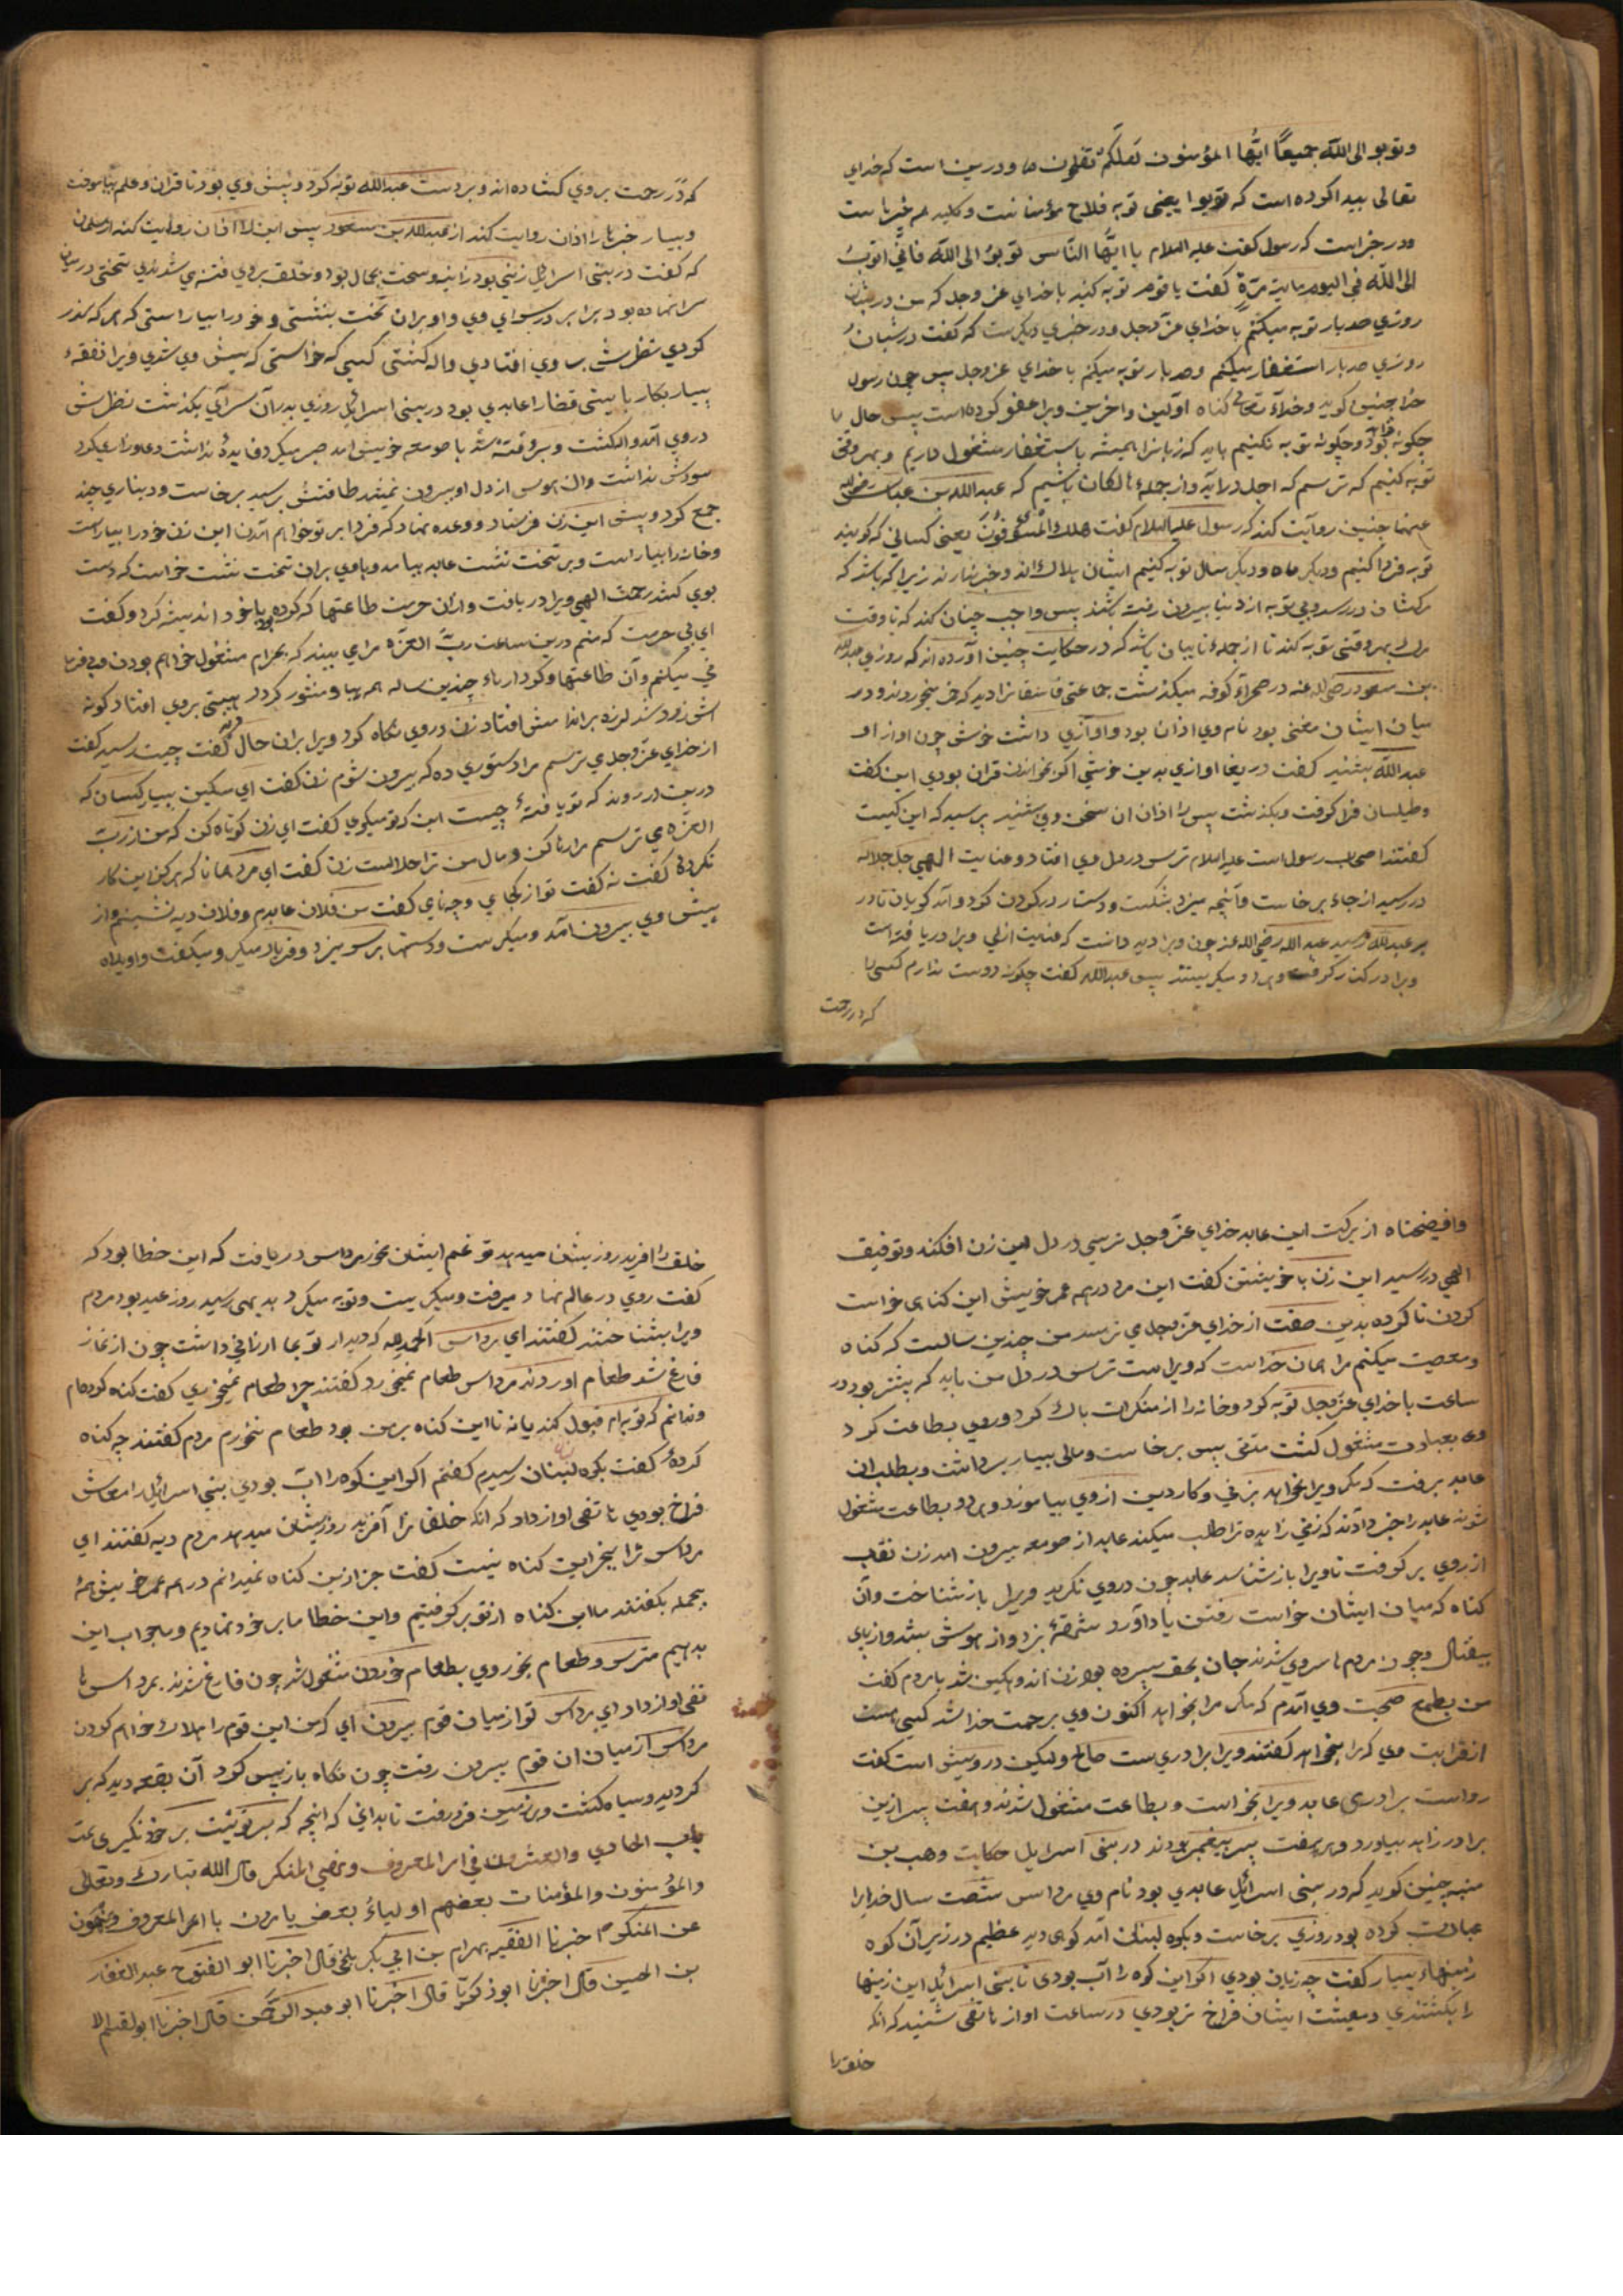 وتوبو الی الله جمیعًا ایُّها المؤمنون لعلکم تفلحون ودرین است که خدای
تعالی پیدا کرده است که توبوا یعنی توبه فلاح مؤمنانست وکلید هم خیرهاست
ودر خبراست که رسول کفت علیه السلام یا ایُّها النّاس توبوُ الی اللّه فانّی اتوبُ
الی اللّه فی الیوم مایة مرّةٍ کفت یا قوم توبه کنید باخدای عز وجل که من در شبان
روزی صدبار توبه میکنم باخدای عزّوجل ودر خبری دیکرست که کفت در شبان
روزی صدبار استغفار میکنم وصدبار توبه میکنم باخدای عزوجل پس چون رسول
خدا چنین کوید وخدآء تعالی کناه اوّلین واخرین ویرا عفو کرده است پس حال ما
چکونه بود وچکونه توبه نکنیم باید که زبانرا همیشه باستغفار مشغول داریم وبهر وقتی
توبه کنیم که ترسم که اجل درآید واز جملهٔ هالکان باشیم که عبدالله بن عباس رضی الله
عنهما چنین روآیت کند که رسول علیه السلام کفت هلك المسوّفون یعنی کسانی که کویند
توبه فردا کنیم ودیکر ماه ودیکر سال توبه کنیم ایشان هلاك اند وخبر ندارند زیرا که باشد که
مرکشان دررسد وبی توبه از دنیا بیرون رفته باشند پس واجب چنان کند که تا وقت
مرك بهر وقتی توبه کند تا از جملهٔ تایبان باشد که در حکایت چنین آورده اند که روزی عبدالله
بن مسعود رضی الله عنه در صحرآء کوفه میکذشت جماعتی فاسقانرا دید که خمر میخوردند ودر
میان ایشان مغنی بود نام وی اذان بود واوازی داشت خوش چون اواز او
عبدالله بشنید کفت دریغا اوازی بدین خوشی اکر بخواندن قران بودی این کفت
وطیلسان فرا کرفت وبکذشت پس را اذان ان سخن وی بشنید پرسید که این کیست
کفتند اصحاب رسول است علیه السلام ترس در دل وی افتاد وعنایت الهی جل جلاله
دررسید از جاء برخاست وآنچه میزد بشکست ودستار در کردن کرد وآمد کویان تا در
بر عبدالله رسید عبدالله رضی الله عنه چون ویرا دید دانست که عنایت ازلی ویرا دریافته است
ویرا در کنار کرفت وهر دو میکریستند پس عبدالله کفت چکونه دوست ندارم کسی را
که در رحمت
که دَرِ رحمت بروی کشاده اند وبردست عبدالله توبه کرد وپیش وی بود تا قران وعلم بیاموخت
وبسیار خبرها را اذان روایت کند از عبدالله بن مسعود پس این را اذان روایت کند از سلمان
که کفت در بنی اسرائیل زنی بود زانیه وسخت بجمال بود وخلق بروی فتنه می شدندی تختی در میان
سرا نهاده بود برابر در سرای وی واو بران تخت بنشستی وخود را بیاراستی که هر که کذر
کردی نظرش بر وی افتادی واله کشتی کسی که خواستی که پیش وی شدی ویرا نفقهٔ
بسیار بکار بایستی قضارا عابدی بود در بنی اسرائیل روزی بدرآن سرآی بکذشت نظرش
در وی آمد واله کشت وبرو فتنه شد با صومعه خویش امد صبر میکرد فایدهٔ نداشت دعا وزاری میکرد
سودش نداشت وان هوس از دل او بیرون نمیشد طاقتش برسید برخاست ودیناری چند
جمع کرد وپیش این زن فرستاد ووعده نهاد که فردا بر تو خواهم آمدن این زن خود را بیاراست
وخانه را بیاراست وبر تخت نشست عابد بیامد وباوی بران تخت نشست خواست که دست
بوی کشد رحمت الهی ویرا دریافت وازان حرمت طاعتها که کرده بود باخود اندیشه کرد وکفت
ای بی حرمت که منم درین ساعت ربّ العزّه مرا می بیند که بحرام مشغول خواهم بودن وبی فرما
نی میکنم وآن طاعتها وکردارهاء چندین ساله همه هبا ومنثور کردد هیبتی بروی افتاد کونه
اش زرد شد لرزه براندامش افتاد زن دروی نکاه کرد ویرا بران حال دید کفت چیت رسید کفت
از خدای عزّوجل می ترسم مرا دستوری ده که بیرون شوم زن کفت ای مسکین بسیار کسان که
دربن در روند که تو یافتهٔ چیست این که تو میکوی کفت ای زن کوتاه کن که من از ربّ
العزّه می ترسم مرا رها کن ومال من ترا حلالست زن کفت ای مرد همانا که هرکز این کار
نکردهٔ کفت نه کفت تو از کجای وچه نامی کفت من فلان عابدم وفلان دیه نشینم واز
پیش وی بیرون آمد ومیکریست ودستها برسر میزد وفریاد میکرد ومیکفت واویلاه
وافیضحتاه از برکت این عابد خدای عزّوجل ترسی در دل این زن افکند وتوفیق
الهی دررسید این زن با خویشتن کفت این مرد درهمه عمر خویش این کناهی خواست
کردن ناکرده بدین صفت از خدای عزّوجل می ترسد من چندین سالست که کناه
ومعصیت میکنم مرا همان خداست که ویراست ترس در دل من باید که بیشتر بود در
ساعت باخدای عزّوجل توبه کرد وخانه را از منکرات پاك کرد وروی بطاعت کرد
وبعبادت مشغول کشت مدّتی پس برخاست ومالی بسیار برداشت وبطلب ان
عابد برفت که مکر ویرا بخواهد بزنی وکار دین ازوی بیاموزد وهر دو بطاعت مشغول
شوند عابد را خبر دادند که زنی زاهده ترا طلب میکند عابد از صومعه بیرون امد زن نقاب
از روی بر کرفت تا ویرا بازشناسد عابد چون دروی نکرید ویرا بازشناخت وآن
کناه که میان ایشان خواست رفتن یاد آورد شهقهٔ بزد واز هوش بشد واز پای
بیفتاد وچون مردم با سر وی شدند جان بحق سپرده بود زن اندوهکین شد با مردم کفت
من بطمع صحبت وی آمدم که مکر مرا بخواهد اکنون وی برحمت خدا شد کسی هست
از قرابت وی که مرا بخواهد کفتند ویرا برادری ست صالح ولیکن درویش است کفت
رواست برادری عابد ویرا بخواست وبطاعت مشغول شدند وهفت پسر ازین
برادر زاهد بیاورد وهر هفت پسر پیغمبر بودند در بنی اسرایل حکایت وهب بن
منبه چنین کوید که در بنی اسرائیل عابدی بود نام وی مرداس شصت سال خدایرا
عبادت کرده بود روزی برخاست وبکوه لبنان آمد کوهی دید عظیم در زیر آن کوه
زمینهاء بسیار کفت چه زیان بودی اکر این کوه را آب بودی تا بنی اسرائیل این زمینها
را بکشتندی ومعیشت ایشان فراخ تر بودی در ساعت اواز هاتفی شنید که انکه
خلق را
خلق را افرید روزیشان میدهد تو غم ایشان مخور مرداس دریافت که این خطا بود که
کفت روی در عالم نهاد ومیرفت ومیکریست وتوبه میکرد بدیهی رسید روز عید بود مردم
ویرا بشناختند کفتند ای مرداس الحمد لله که دیدار تو بما ارزانی داشت چون از نماز
فارغ شد طعام اوردند مرداس طعام نمیخورد کفتند چرا طعام نمیخوری کفت کناه کرده ام
وندانم که توبه ام قبول کند یا نه تا این کناه بر من بود طعام نخورم مردم کفتند چه کناه
کردهٔ کفت بکوه لبنان رسیدم کفتم اکر این کوه را اب بودی بنی اسرائیل را معاش
فراخ بودی هاتفی اواز داد که انکه خلقانرا آفرید روزیشان میدهد مردم دیه کفتند ای
مرداس ترا بجز این کناه نیست کفت جز ازین کناه نمیدانم درهمه عمر خویش همهٔ
بجمله بکفتند ما این کناه از تو بر کرفتیم واین خطا ما بر خود نهادیم وما جواب این
بدهیم مترس وطعام بخور وی بطعام خوردن مشغول شد چون فارغ شدند بمرداس ها
تفی اواز داد ای مرداس تو از میان قوم بیرون آی که من این قوم را هلاك خواهم کردن
مرداس از میان ان قوم بیرون رفت چون نکاه بازپس کرد آن بقعه دید که بر
کردید وسیاه کشت وبرزمین فرو رفت تا بدانی که انچه که بر تو نیست بر خود نکیری تمت
باب الحادی والعشرون فی امر المعروف ونهی المنکر قال الله تبارك وتعالی
والمؤمنون والمؤمنات بعضهم اولیاءُ بعض یامرون بالمعروف وینهون
عن المنکر اخبرنا الفقیه بهرام بن ابی بکر بلخی قال اخبرنا ابو الفتوح عبد الغفار
بن الحسین قال اخبرنا ابوذکریّا قال اخبرنا ابو عبد الرحمن قال اخبرنا ابو القسم